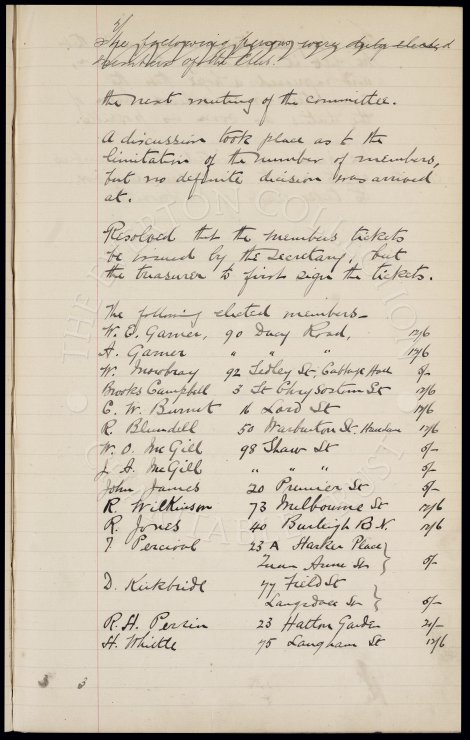 The following persons were duly elected
members of the Club.
the next meeting of the committee.
A discussion took place as to the
limitation of the number of members,
but no definite decision was arrived
at.
Resolved that the members tickets
be issued by the secretary, but
the treasurer to first sign the tickets.
The following elected members—
W. C. Garner, 90 Dacy Road, 12/6
A. Garner " " " 12/6
W. Mowbray 92 Sedley St, Cabbage Hall 5/-
Brooks Campbell 3 St Chrysostom St 12/6
C. W. Burnet 16 Lord St 12/6
R Blundell 50 Warburton St, 12/6
W. O. McGill 98 Shaw St 5/-
J. A. McGill " " " 5/-
John James 20 Premier St 5/-
R. Wilkinson 73 Melbourne St 12/6
R. Jones 40 Burleigh R. N. 12/6
T Percival 23 A Harker Place
Queen Anne St 5/-
D. Kirkbride 77 Field St
Langsdale St 5/-
R. H. Perrin 23 Hatton Garden
H. Whittle 75 Langham St 12/6
THE EVERTON COLLECTION